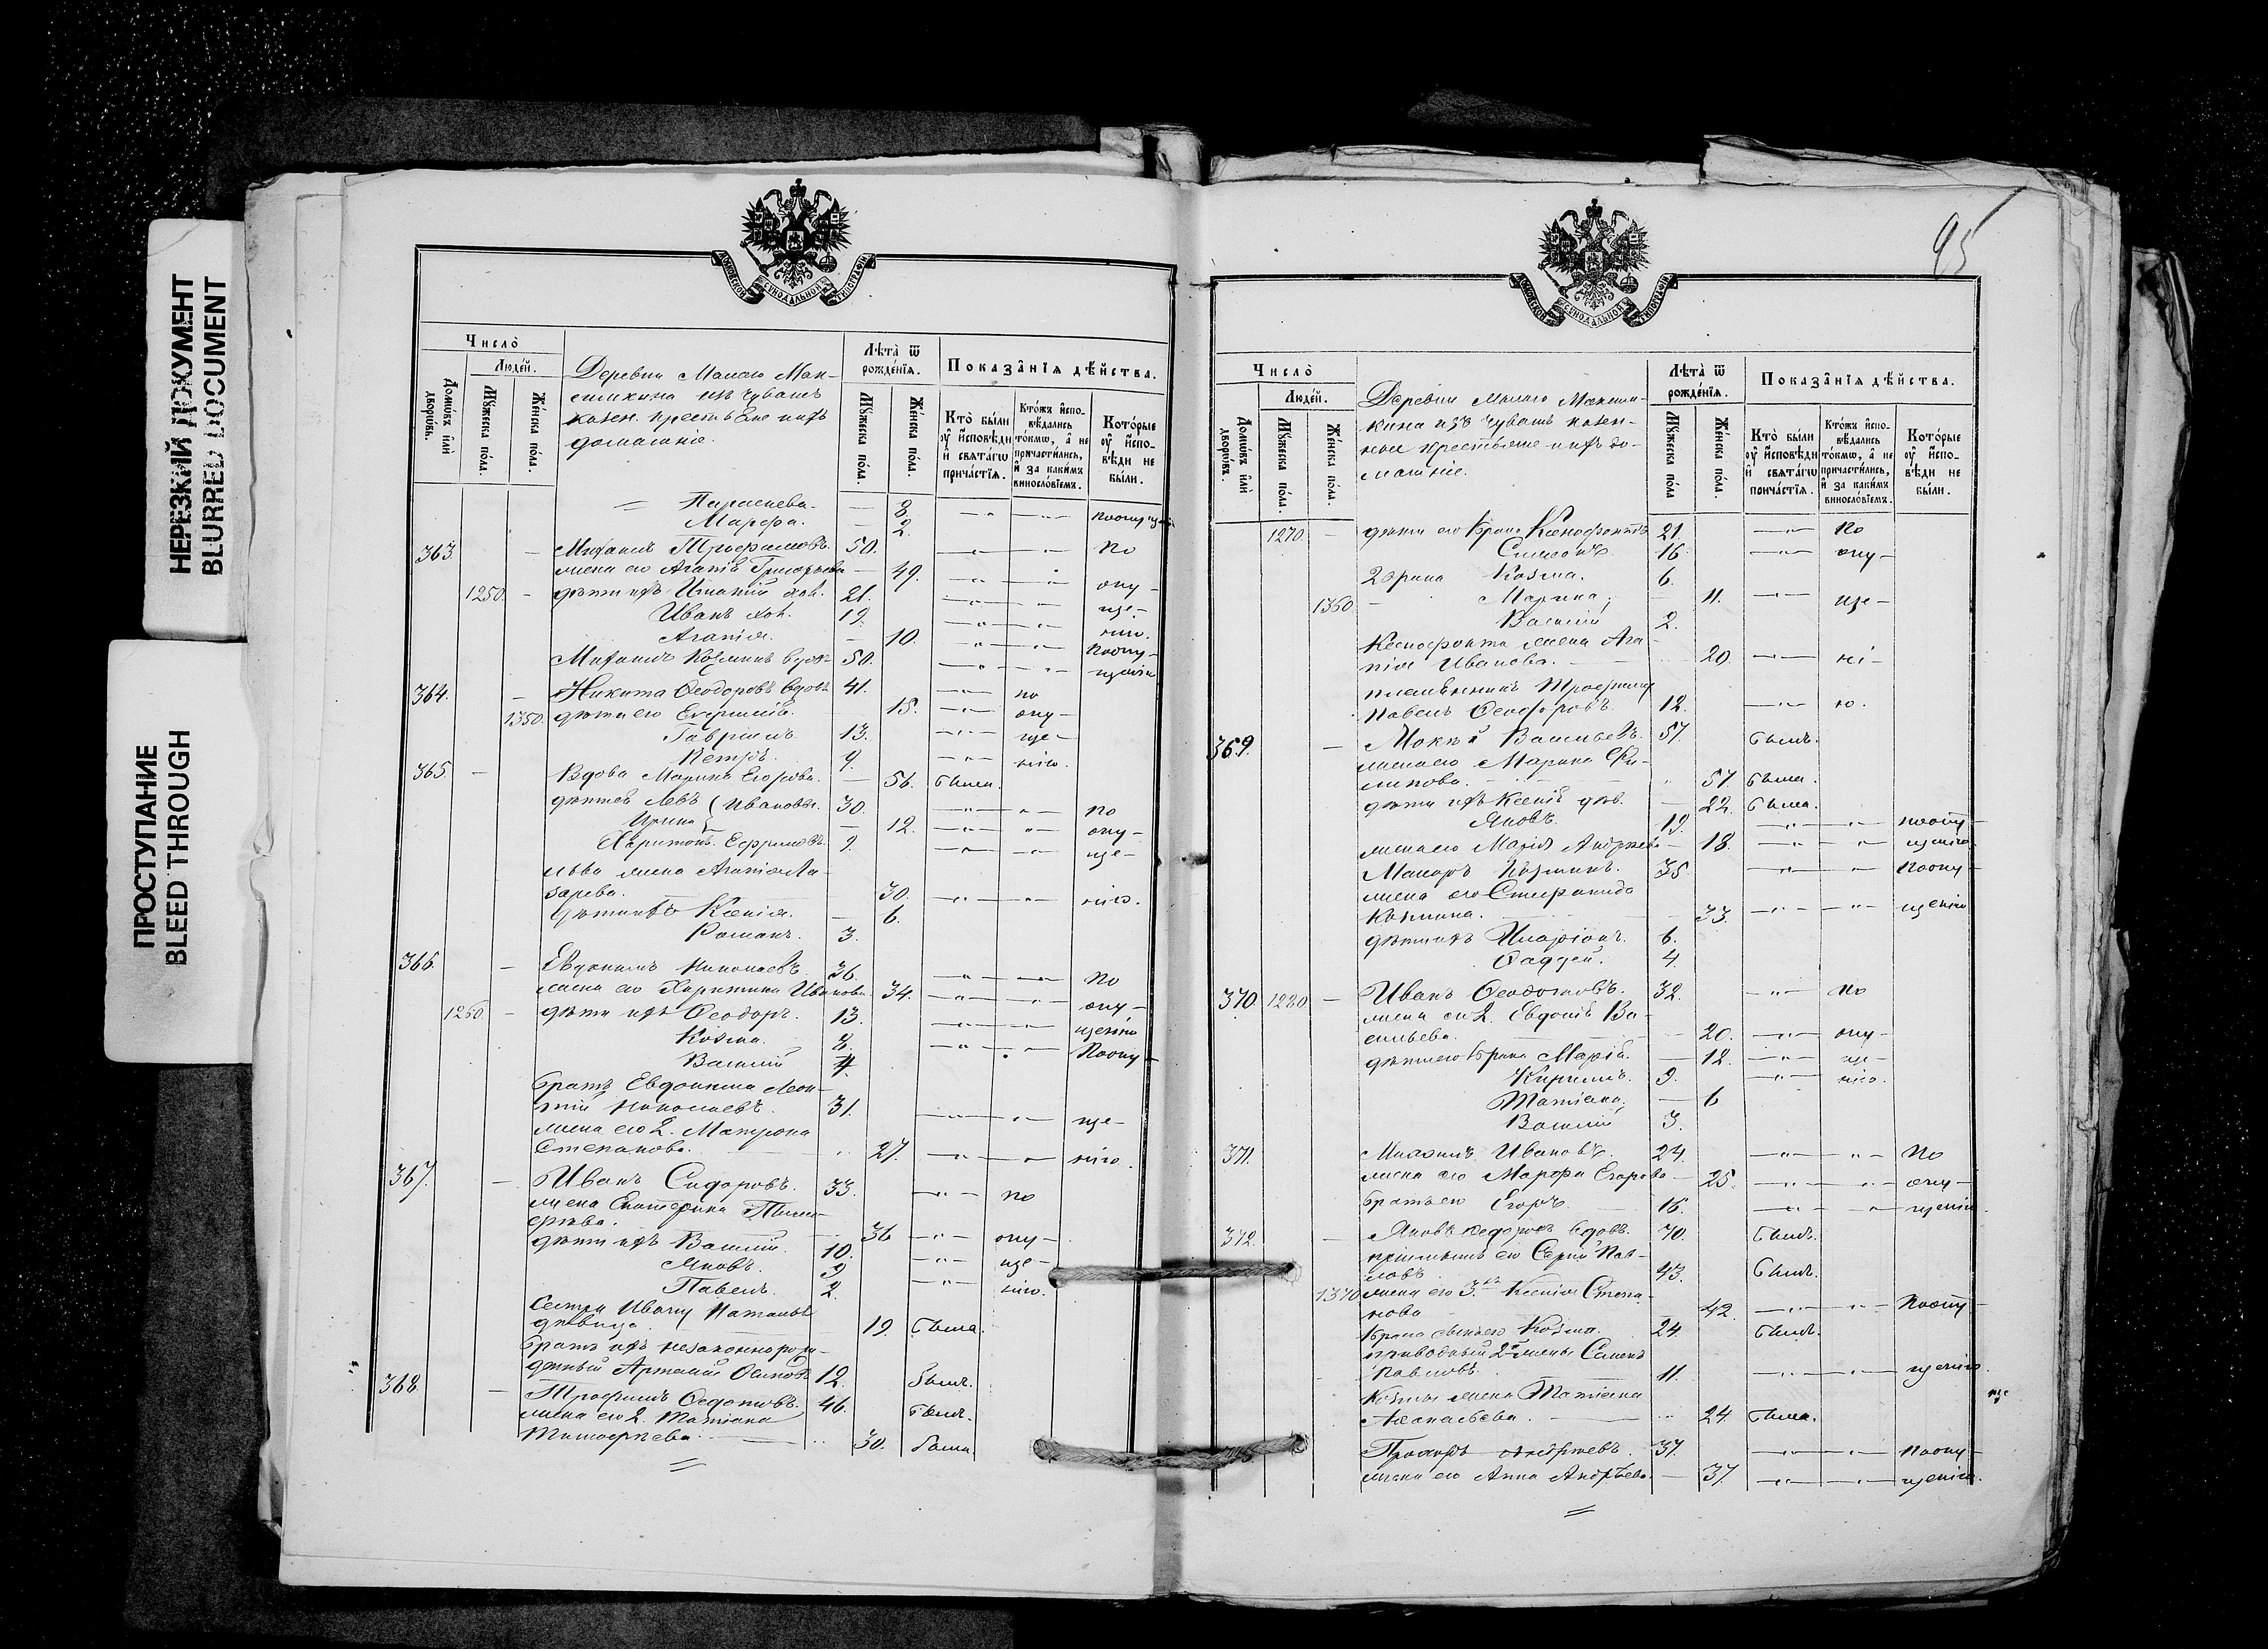 НЕРЕЗКИЙ ДОКУМЕНТ
BLURRED DOCUMENT
ПРОСТУПАНИЕ
BLEED THROUGH
МОСКОВСКОЙ СѴНОДАЛЬНОЙ ТИПОГРАФІИ
Число̀
Людéй.
Домѡ́въ и҆лѝ дворѡ́въ.
Мꙋ́жеска по́ла.
Же́нска по́ла.
Деревни Малаго Мак-
сикина изъ чувашъ
казен. крестьяне и ихъ
домашніе.
Лѣта̀ ѿ рожде́нїя.
Мꙋ́жеска по́ла.
Же́нска по́ла.
Показа̑нїя дѣ́йства.
Кто̀ бы́ли ᲂу҆ и҆́сповѣди и҆ свѧта́гѡ прича́стїѧ.
Кто́жъ и҆спо-вѣ́дались то́кмѡ, а҆ не причасти́лись, и҆ за каки́мъ винословіемъ.
Кото́рые ᲂу҆ и҆́спо-вѣди не бы́ли.
Параскева. — 8.
Марѳа. — 2.
363. Михаилъ Трофимовъ. 50. по
жена его Агапія Григорьева — 49. опу-
1250. дѣти ихъ Игнатій хол. 21. ще-
Иванъ хол. 19. нію.
Агапія. — 10. Поопу-
Михаилъ Козминъ вдовъ 50. щенію
364. Никита Ѳеодоровъ вдовъ 41. по
1350. дѣти его 15. опу-
Гавріилъ 13. ще-
Петръ. 9. нію.
365. Вдова Марина Егорова. — 56. была.
дѣти ея Левъ Ивановы. 30. по
Ирина — 12. опу-
Харитонъ Ефримовъ. 9. ще-
Льва жена Агапія Ла-
зарева. 30. нію.
дѣти ихъ Ксенія. — 6.
Романъ. 3.
366. Евдокимъ Николаевъ 36. по
жена его Харитина Иванова 34. опу-
1260. дѣти ихъ Ѳеодоръ. 13. щенію
Козма. 8. Поопу-
Василій 4.
братъ Евдокима Леон-
тій Николаевъ. 31. ще-
жена его 2. Матрона
Степанова. 27. нію.
367. Иванъ Сидоровъ. 33. по
жена Екатерина Тимо-
фѣева. 36 опу-
дѣти ихъ Василій. 10. ще-
Яковъ. 9 нію.
Павелъ. 2.
Сестра Ивану
дѣвица. 19. была.
братъ ихъ незаконнорож-
денный Артемій Осиповъ 12. былъ.
368. Трофимъ Ѳедотовъ. 46. былъ.
жена его 2. Татіана
Тимофѣева 30. была
95
МОСКОВСКОЙ СѴНОДАЛЬНОЙ ТИПОГРАФІИ
Число̀
Людéй.
Домѡ́въ и҆лѝ дворѡ́въ.
Мꙋ́жеска по́ла.
Же́нска по́ла.
Деревни Малаго Макси-
кина изъ чувашъ казен-
ные крестьяне и ихъ до-
машніе.
Лѣта̀ ѿ рожде́нїя.
Мꙋ́жеска по́ла
Же́нска по́ла.
Показа̑нїя дѣ́йства.
Кто̀ бы́ли ᲂу҆ и҆́сповѣди и҆ свѧта́гѡ прича́стїѧ.
Кто́жъ и҆спо-вѣ́дались то́кмѡ, а҆ не причасти́лись, и҆ за каки́мъ винословіемъ.
Кото́рые ᲂу҆ и҆́спо-вѣди не бы́ли.
1270. дѣти его 1 брака Ксенофонтъ 21. по
Симеонъ. 16. опу-
2 брака Козма. 6.
1360 Марина; 11. ще-
Василій 2.
Ксенофонта жена Ага-
пія Иванова. 20. ні-
племянникъ Трофиму
Павелъ Ѳеодоровъ. 12. ю.
369. Мокій Васильевъ. 57. былъ.
жена его Марина Фи-
липова. 57. была.
дѣти ихъ Ксенія дѣв. — 22. была.
Яковъ. 19. поопу-
жена его Марія Андреева — 18. щенію.
Макаръ Козминъ. 35. Поопу-
жена его Стефанида
Козмина. 33. щенію
дѣти ихъ Иларіонъ. 6.
Ѳаддей. 4.
370. 1280 Иванъ Ѳеодотовъ. 32. по
жена его 2. Евдокія Ва-
сильева. 20. опу-
дѣти его 1 брака Марія. — 12. ще-
Кирилъ. 9. нію.
Татіана. — 6
Василій 3.
371. Ивановъ. 24. по
жена его Марѳа Егорова — 25. опу-
братъ его Егоръ. 16. щенію.
372. Яковъ Ѳедоровъ вдовъ. 70. былъ.
пріемышъ его Сергій Пав-
ловъ 43. былъ.
1370 жена его 3. Ксенія Степа-
нова 42. Поопу-
1 брака сынъ его Козма. 24 былъ.
приводный 2й жены Семенъ
Павловъ. 11. щенію.
Козмы жена Татіана
Аѳанасьева. 24 была.
Прохоръ Андреевъ. 37. Поопу-
жена его Анна Андреева. — 37. щенію.